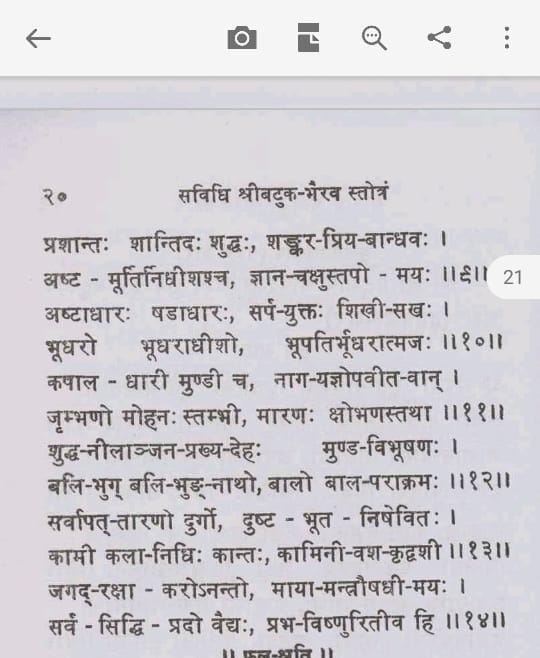 २०
सविधि श्रीबटुक-भैरव स्तोत्रं
प्रशान्तः शान्तिदः शुद्धः, शङ्कर-प्रिय-बान्धवः ।
अष्ट - मूर्तिनिधीशश्च, ज्ञान-चक्षुस्तपो - मयः ।।९।।
21
अष्टाधारः षडाधारः, सर्प-युक्तः शिखी-सखः ।
भूधरो भूधराधीशो, भूपतिर्भूधरात्मजः ।।१०।।
कपाल - धारी मुण्डी च, नाग-यज्ञोपवीत-वान् ।
जृम्भणो मोहनः स्तम्भी, मारणः क्षोभणस्तथा ।।११।।
शुद्ध-नीलाञ्जन-प्रख्य-देहः मुण्ड-विभूषणः ।
बलि-भुग् बलि-भुङ्-नाथो, बालो बाल-पराक्रमः ।।१२।।
सर्वापत्-तारणो दुर्गो, दुष्ट - भूत - निषेवितः ।
कामी कला-निधिः कान्तः, कामिनी-वश-कृद्वशी ।।१३।।
जगद्-रक्षा - करोऽनन्तो, माया-मन्त्रौषधी-मयः ।
सर्व - सिद्धि - प्रदो वैद्यः, प्रभ-विष्णुरितीव हि ।।१४।।
।। फल-श्रुति ।।